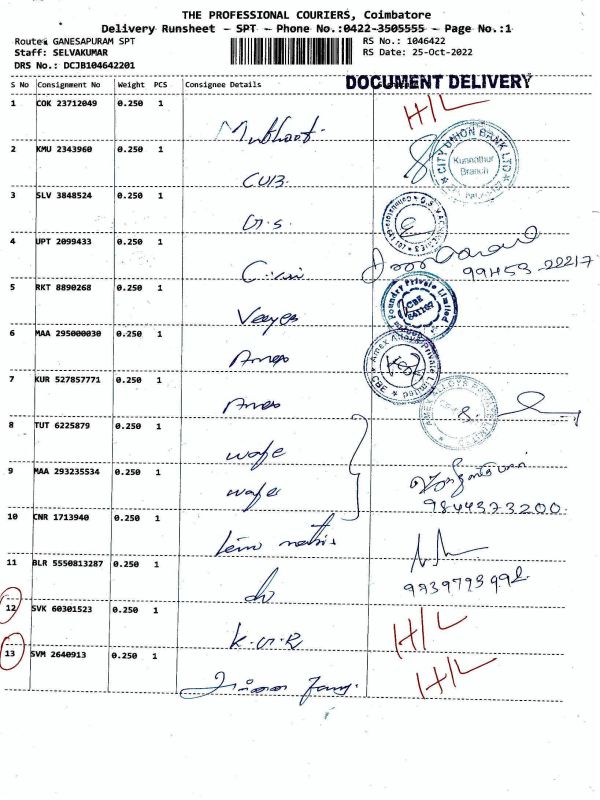 THE PROFESSIONAL COURIERS, Coimbatore
Delivery Runsheet - SPT - Phone No.:0422-3505555 - Page No.:1
Route: GANESAPURAM SPT RS No.: 1046422
Staff: SELVAKUMAR RS Date: 25-Oct-2022
DRS No.: DCJB104642201
S No Consignment No Weight PCS Consignee Details DOCUMENT DELIVERY
1 COK 23712049 0.250 1 H/L
2 KMU 2343960 0.250 1 CUB. CITY UNION BANK LTD Kunnathur Branch
3 SLV 3848524 0.250 1 G.S.
4 UPT 2099433 0.250 1 99453-22217
5 RKT 8890268 0.250 1 Veeyes Foundry Private Limited CBE 641107
6 MAA 295000030 0.250 1 Amex Private Limited
7 KUR 527857771 0.250 1 Amex AMEX ALLOYS
8 TUT 6225879 0.250 1 wafe
9 MAA 293235534 0.250 1 wafe 9844373200
10 CNR 1713940 0.250 1
11 BLR 5550813287 0.250 1 do
12 SVK 60301523 0.250 1 K.G.R H/L
13 SVM 2640913 0.250 1 H/L